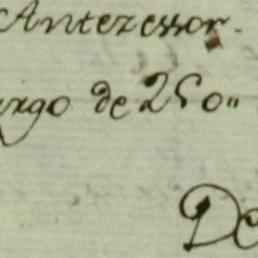 Antezessor.
argo de 250"
De